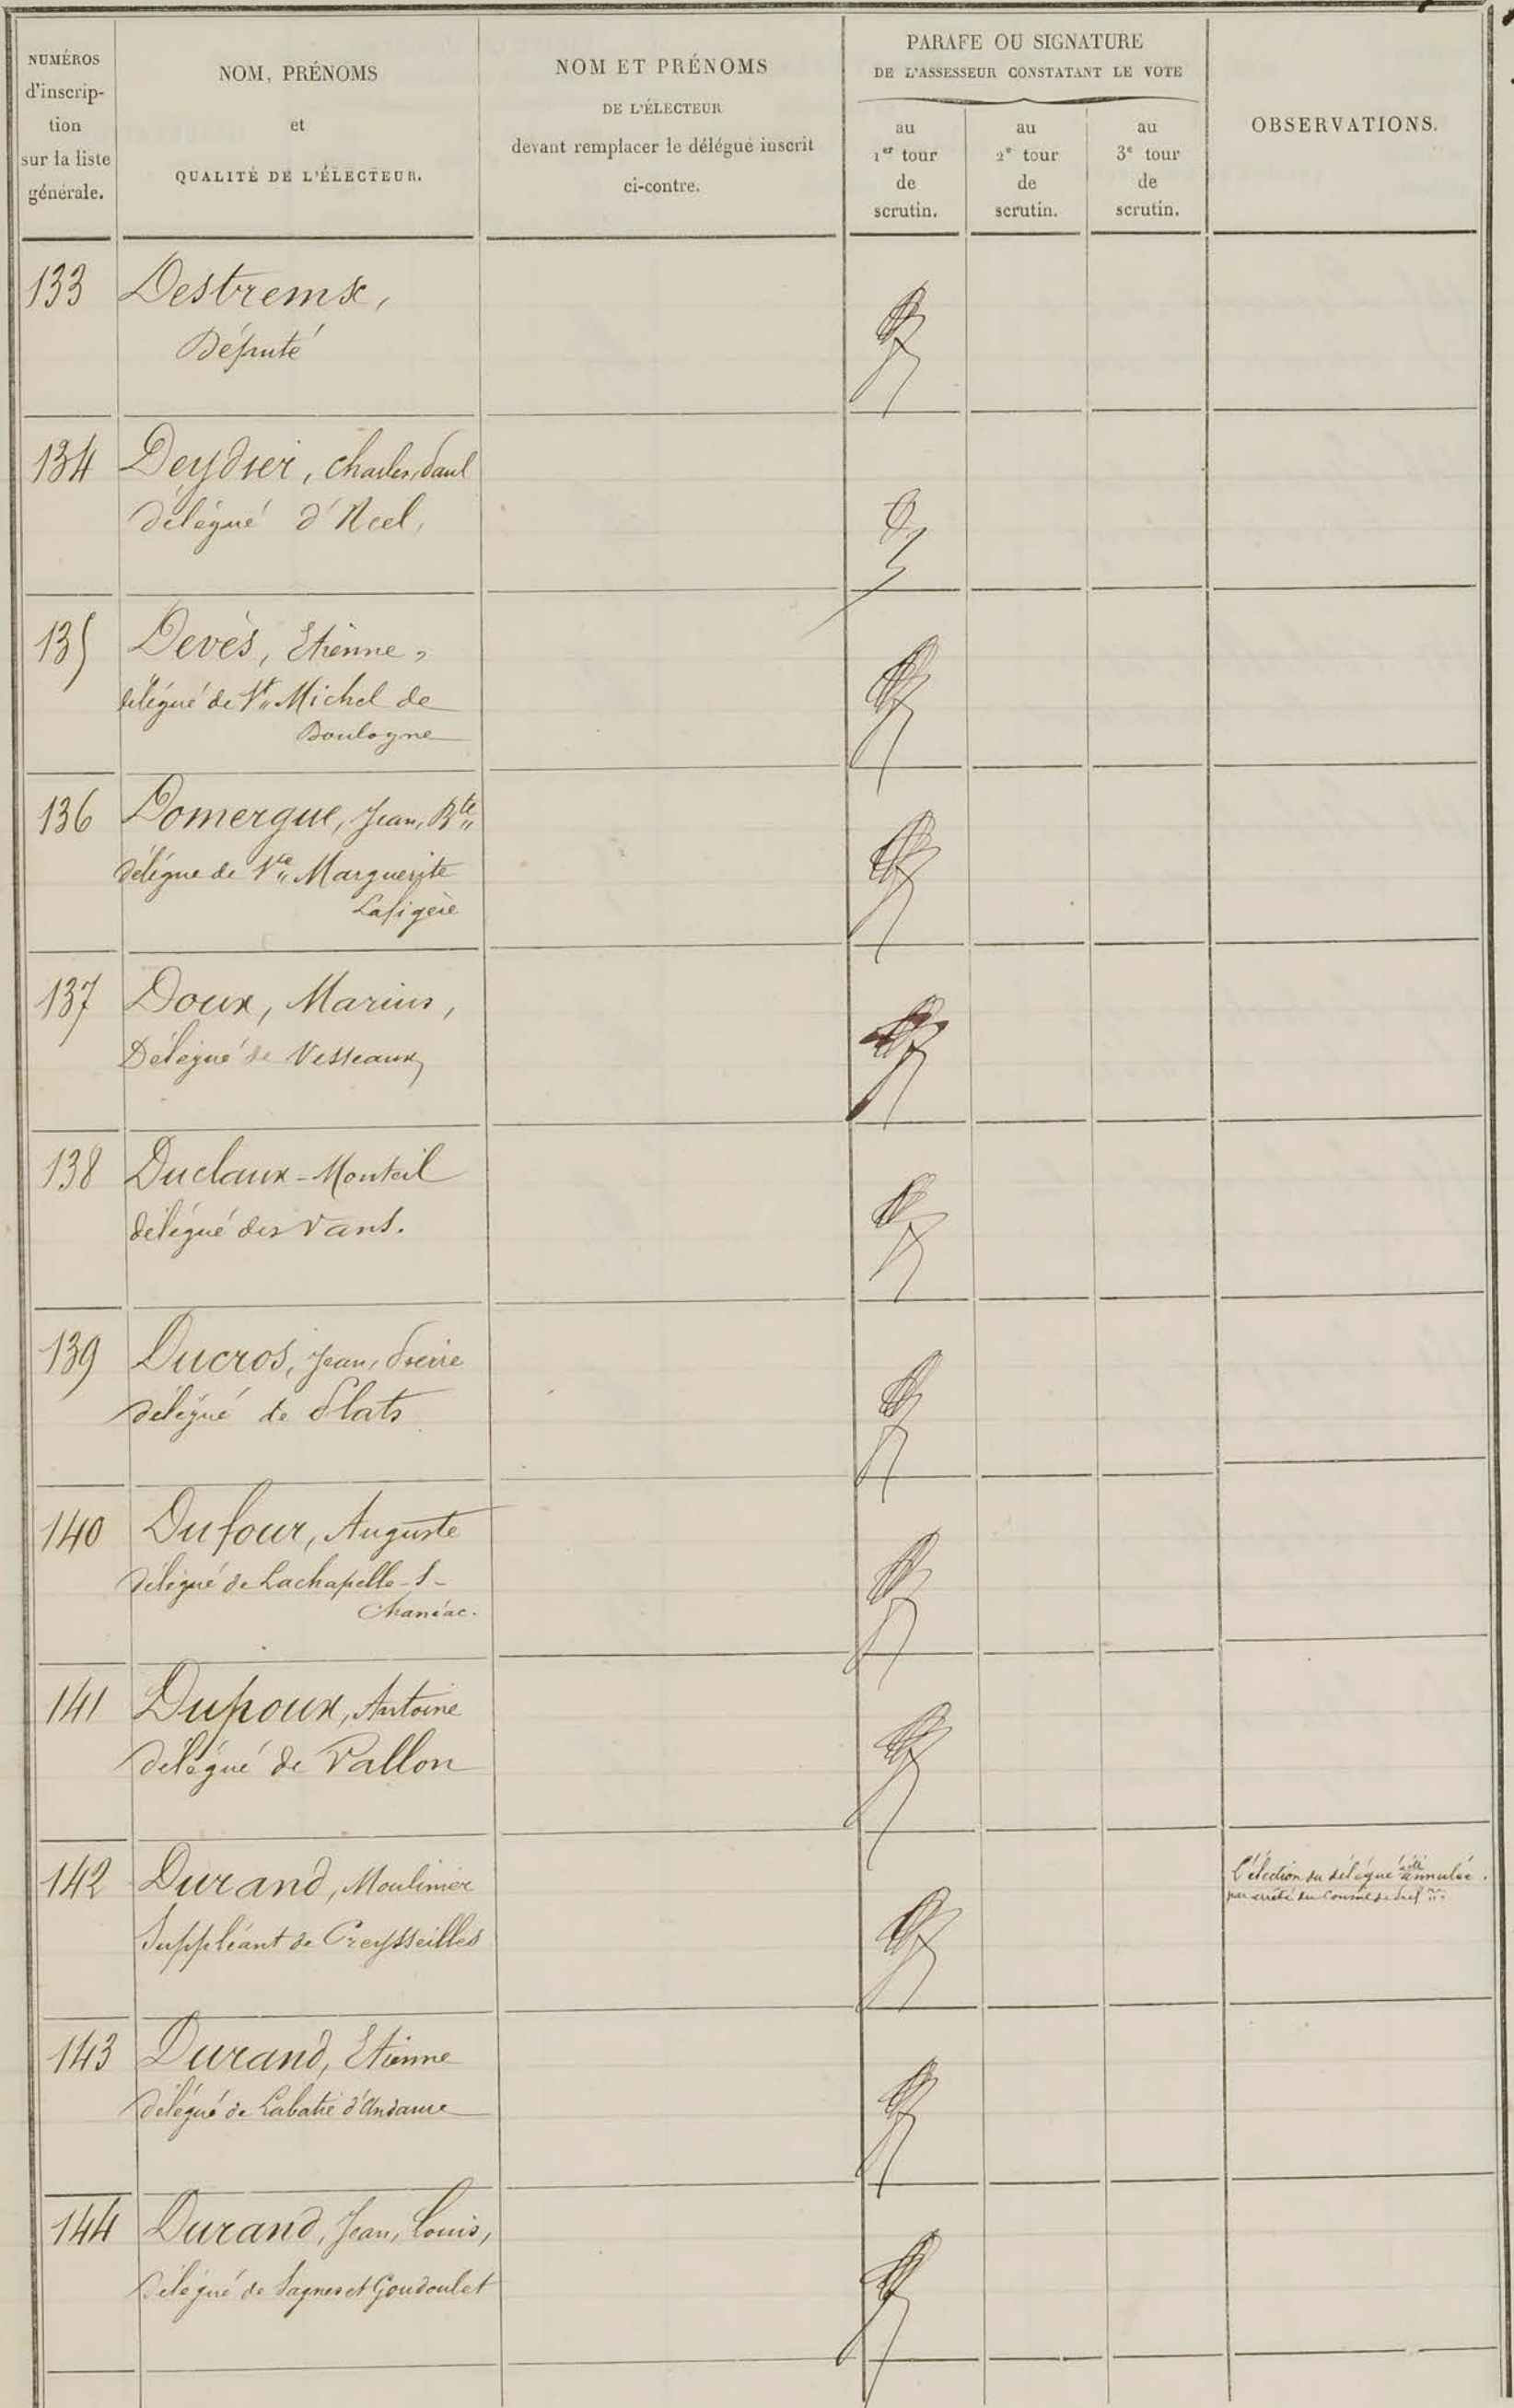 NUMÉROS
d'inscrip-
tion
sur la liste
générale.
NOM, PRÉNOMS
et
QUALITÉ DE L'ÉLECTEUR.
NOM ET PRÉNOMS
DE L'ÉLECTEUR
devant remplacer le délégué inscrit
ci-contre.
PARAFE OU SIGNATURE
DE L'ASSESSEUR CONSTATANT LE VOTE
au
1er tour
de
scrutin.
au
2e tour
de
scrutin.
au
3e tour
de
scrutin.
OBSERVATIONS.
133 Destremx,
Député
134 Deydier, Charles, Paul
délégué d'Ucel,
135 Devès, Etienne,
délégué de St Michel de
Boulogne
136 Domergue, Jean, Bte
délégue de Ste Marguerite
Lafigère
137 Doux, Marius,
Délégué de Vesseaux
138 Duclaux-Monteil
délégué des Vans.
139 Ducros, Jean, Pierre
délégué de Flats
140 Dufour, Auguste
délégué de Lachapelle-s-
Chanéac.
141 Dupoux, Antoine
délégué de Vallon
142 Durand, Moulinier
Suppléant de Creysseilles
L'élection du délégué a été annulée
par arrêté du Conseil de Préf re
143 Durand, Etienne
délégué de Labatie d'Andaure
144 Durand, Jean, Louis,
délégué de Sagnes et Goudoulet